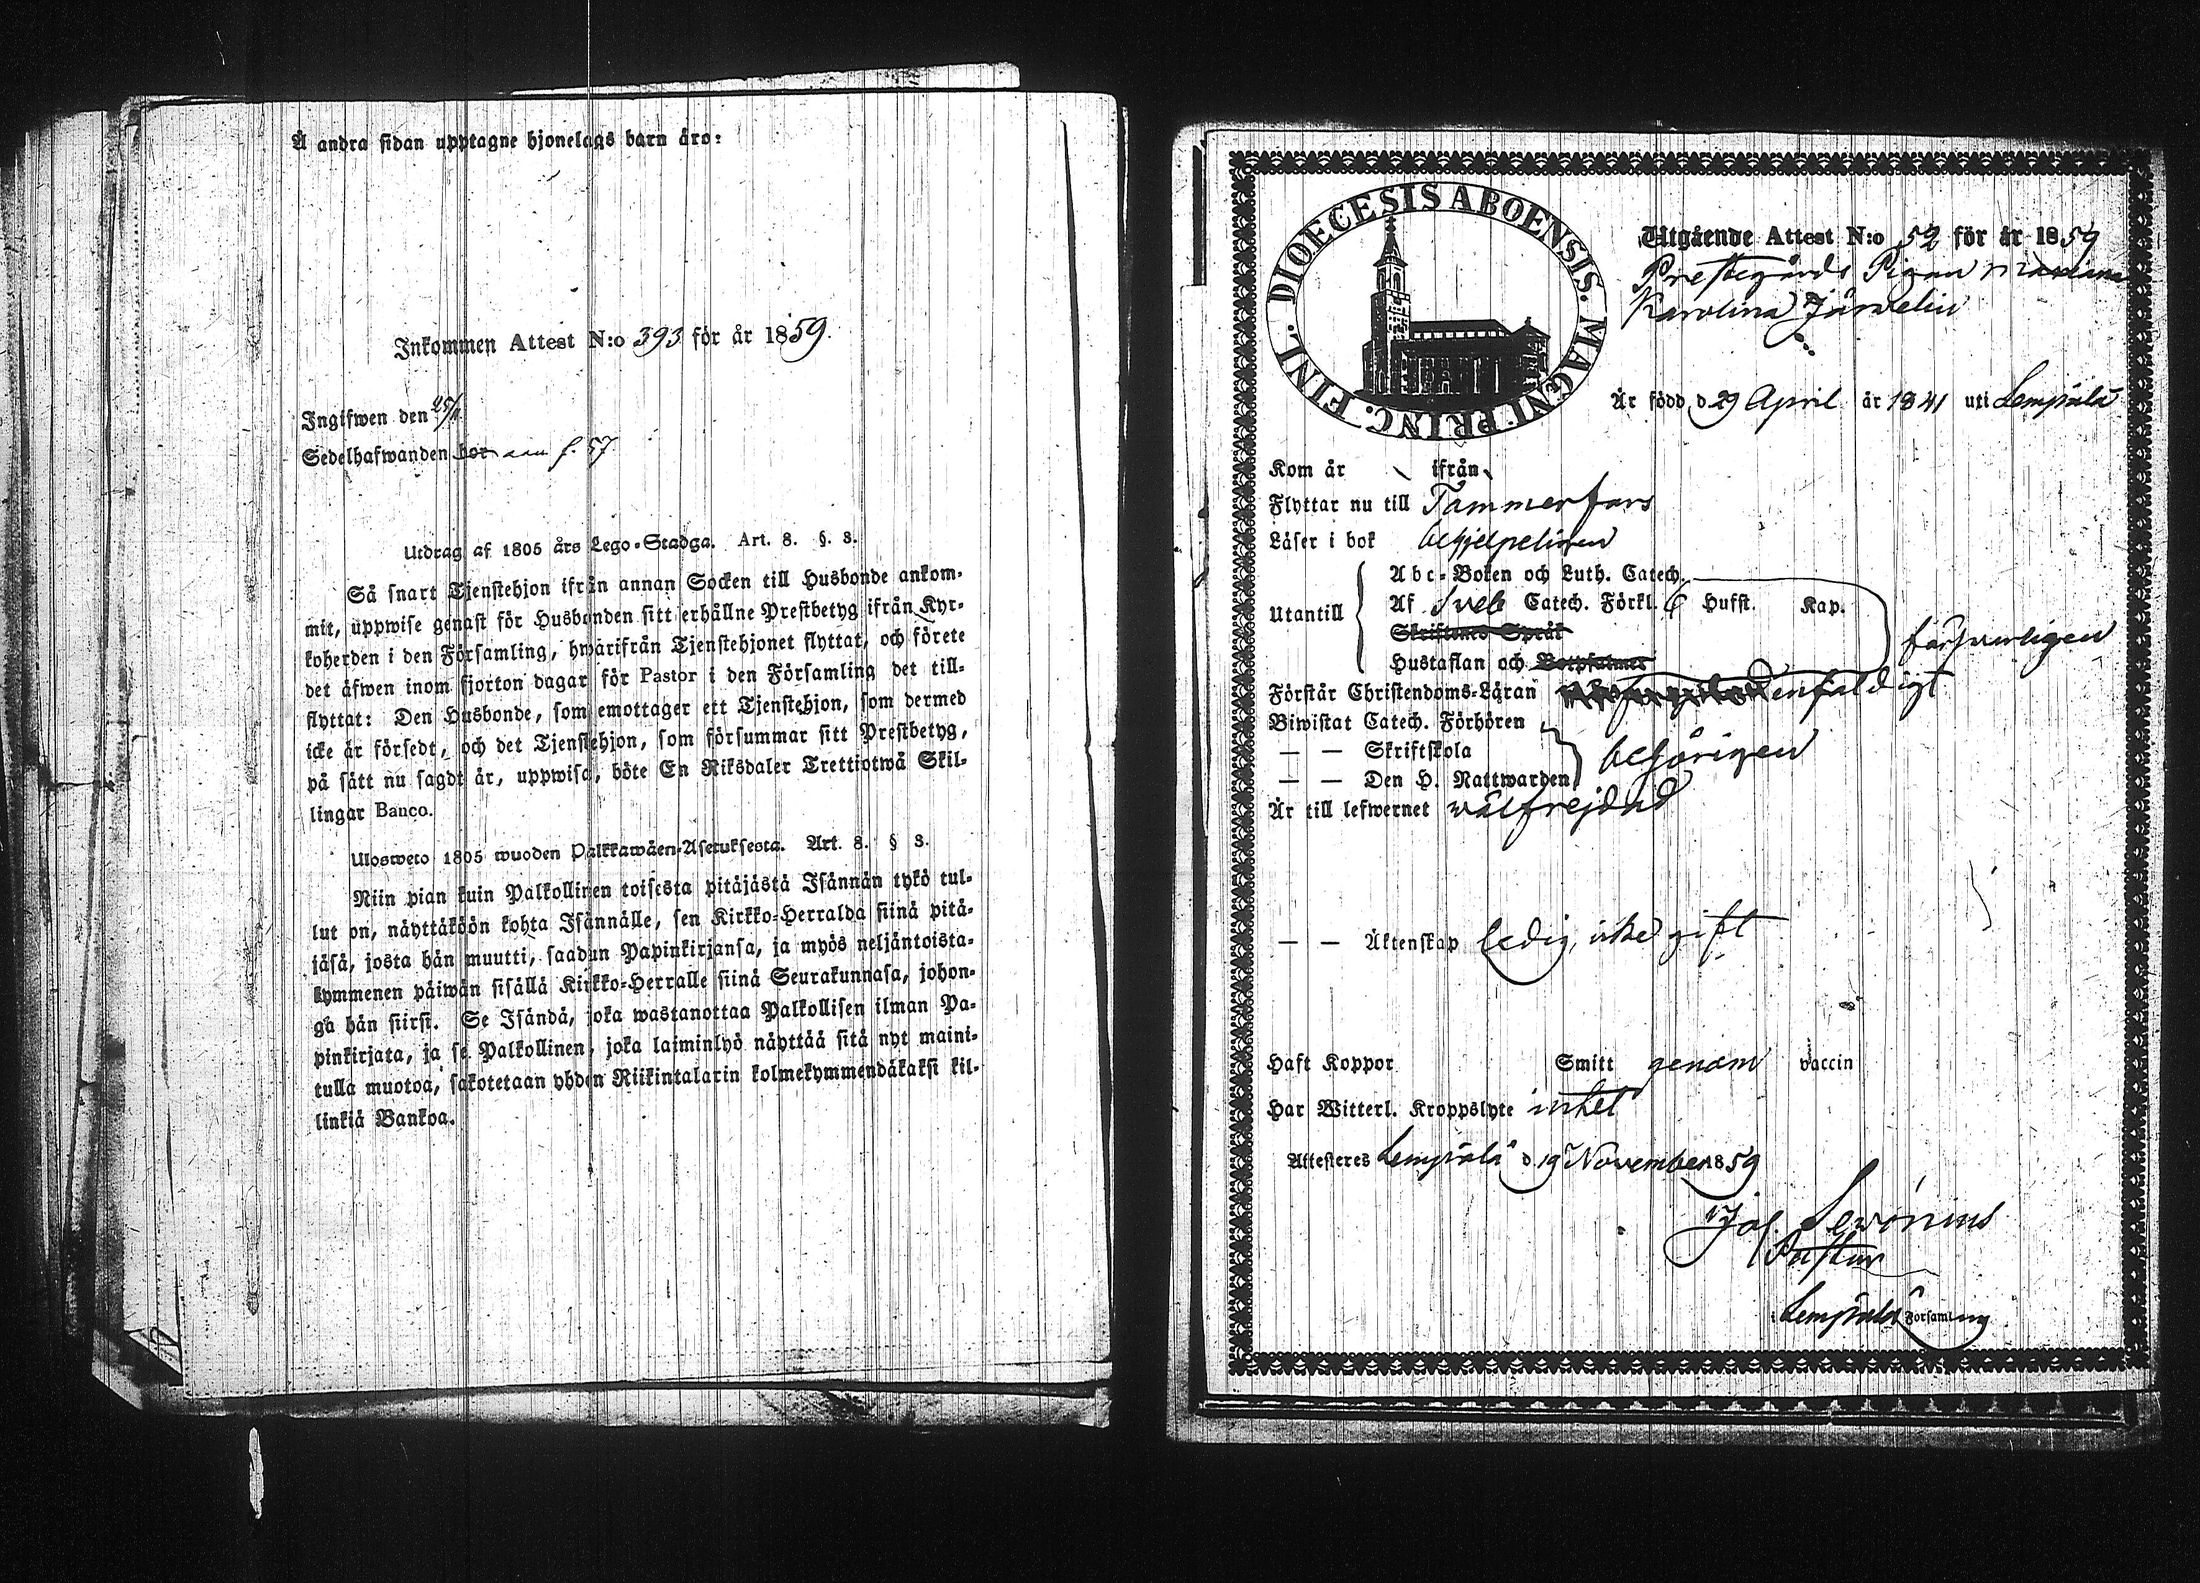 Å andra sidan upptagne hjonelags barn äro:
Inkommen Attest N:o 393 för år 1859.
Ingifwen den 25/11
Sedelhafwanden bor f. 57
Utdrag af 1805 års Lego-Stadga. Art. 8. §. 3.
Så snart Tjenstehjon ifrån annan Socken till Husbonde ankom-
mit, uppwise genast för Husbonden sitt erhållne Prestbetyg ifrån Kyr-
koherden i den Församling, hwarifrån Tjenstehjonet flyttat, och förete
det äfwen inom fjorton dagar för Pastor i den Församling det till-
flyttat: Den Husbonde, som emottager ett Tjenstehjon, som dermed
icke är försedt, och det Tjenstehjon, som försummar sitt Prestbetyg,
på sätt nu sagdt är, uppwisa, böte En Riksdaler Trettiotwå Skil-
lingar Banco.
Ulosweto 1805 wuoden Palkkawäen-Asetuksesta. Art. 8. § 3.
Niin pian kuin Palkollinen toisesta pitäjästä Isännän tykö tul-
lut on, näyttäköön kohta Isännälle, sen Kirkko-Herralda siinä pitä-
jäsä, josta hän muutti, saadun Papinkirjansa, ja myös neljäntoista-
kymmenen päiwän sisällä Kirkko-Herralle siinä Seurakunnasa, johon-
ga hän siirsi. Se Isändä, joka wastanottaa Palkollisen ilman Pa-
pinkirjata, ja se Palkollinen, joka laiminlyö näyttää sitä nyt maini-
tulla muotoa, sakotetaan yhden Riikintalarin kolmekymmendäkaksi kil-
linkiä Bankoa.
DIOECESIS ABOENSIS. MAGNI PRINC. FINL.
Utgående Attest N:o 52 för år 1859
Prestegårds Pigan
Karolina Järvelin
Är född d 29 April år 1841 uti Lempälä
Kom år ifrån
Flyttar nu till Tammerfors
Läser i bok behjelpeligen
Utantill
Abc-Boken och Luth. Catech.
Af Sveb Catech. Förkl. 6 Hufst. Kap.
Skriftenes Språk
Hustaflan och Botpsalmer
försvarligen
Förstår Christendoms-Läran enfaldigt
Biwistat Catech. Förhören
— — Skriftskola
— — Den H. Nattwarden
behörigen
Är till lefwernet välfrejdad
— — Äktenskap ledig, icke gift
Haft Koppor Smitt genom vaccin
Har Witterl. Kroppslyte intet
Attesteres Lempälä d 19 November 1859
Jos. Sevonius
Pastor
i Lempälä Församling